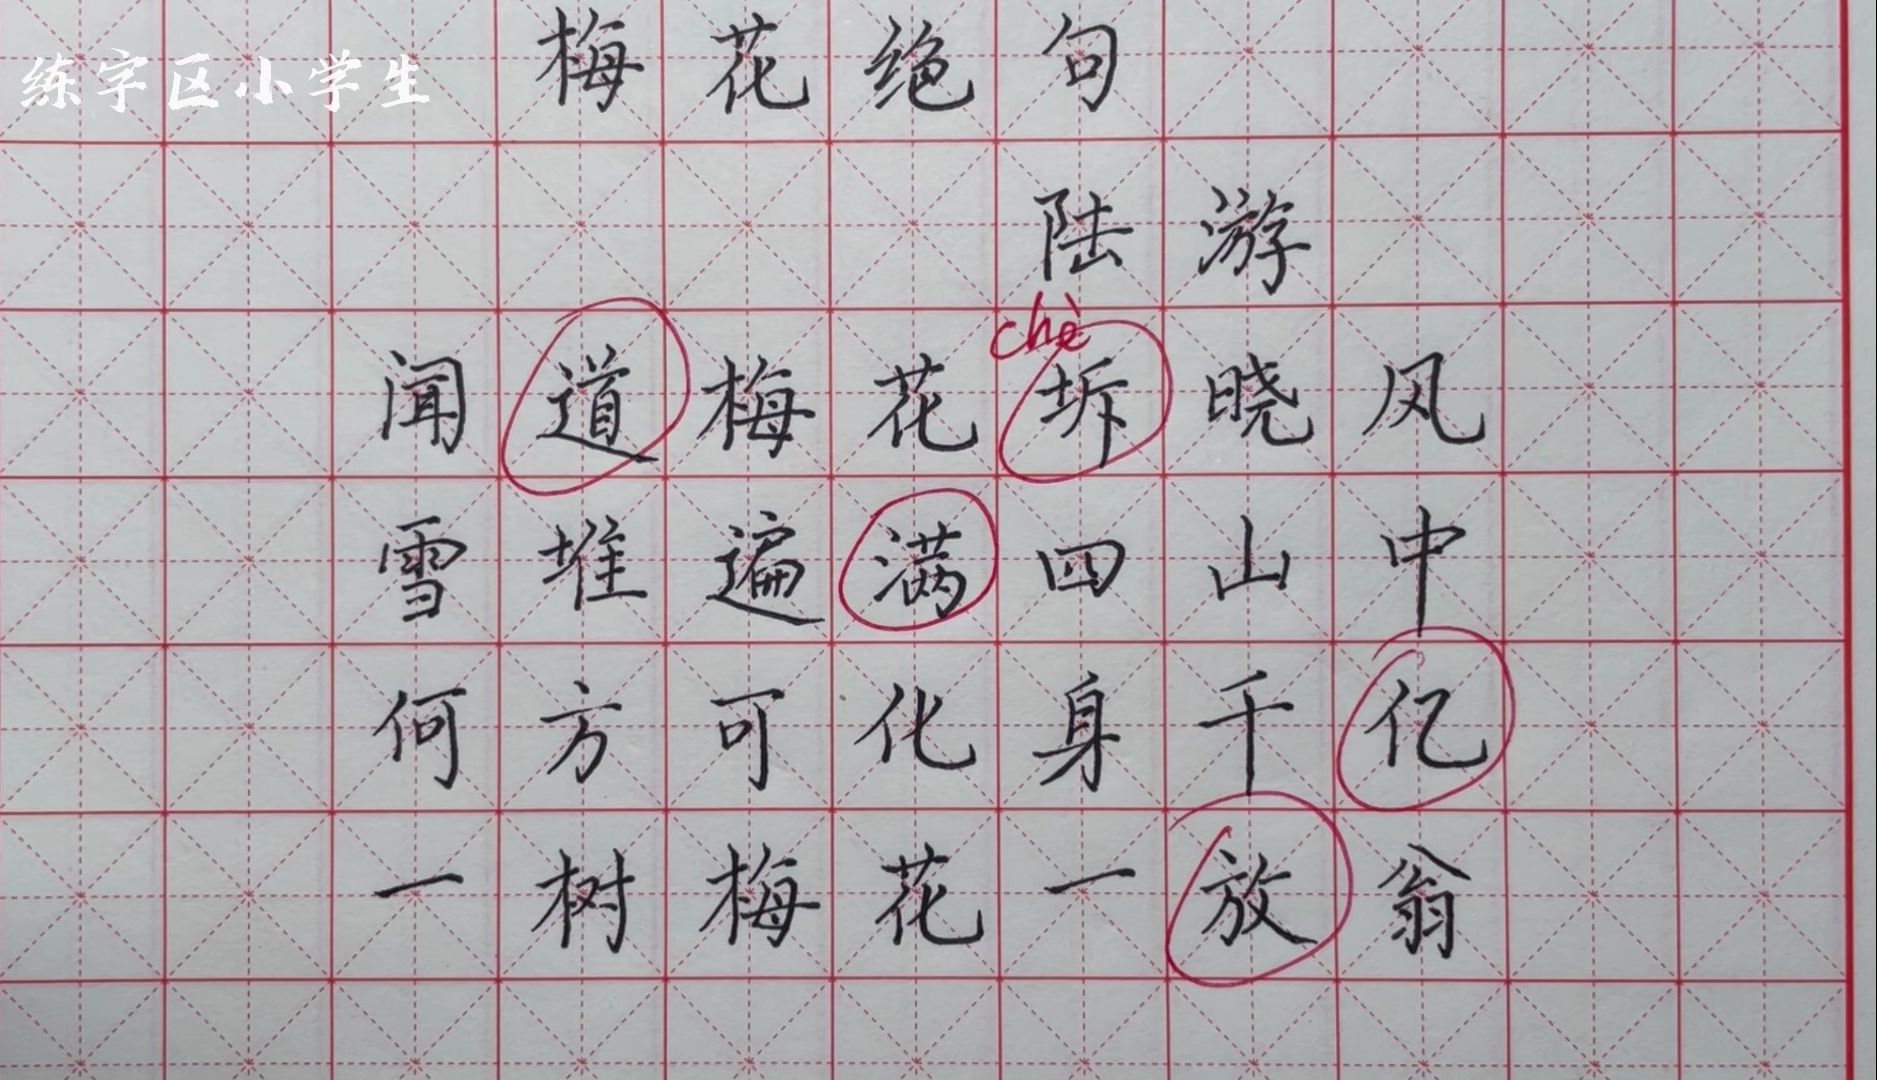 练字区小学生
梅花绝句
陆游
chè
闻道梅花坼晓风
雪堆遍满四山中
何方可化身千亿
一树梅花一放翁